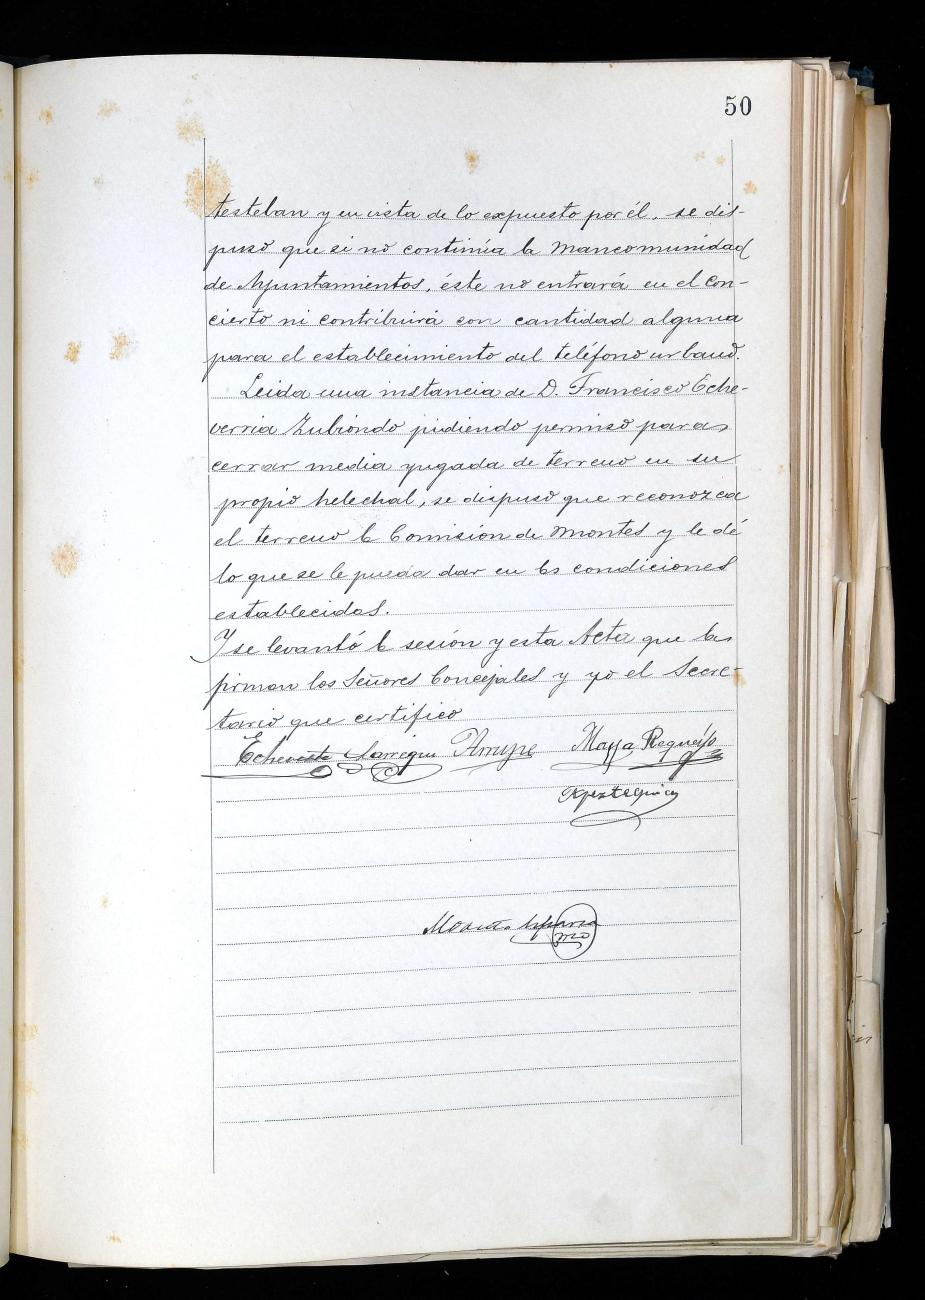 50
testeban y en vista de lo expuesto por él, se dis-
puso que si no continúa la Mancomunidad
de Ayuntamientos, éste no entrará en el con-
cierto ni contribuirá con cantidad alguna
para el establecimiento del teléfono urbano.
Leida una instancia de D. Francisco Eche-
verria Zubiondo pidiendo permiso para
cerrar media yugada de terreno en su
propio helechal, se dispuso que reconozca
el terreno la Comisión de Montes y le dé
lo que se le pueda dar en las condiciones
establecidas.
Y se levantó la sesión y esta Acta que la
firman los Señores Concejales y yo el Secre-
tario que certifico
Echeveste Larregui Arrupe Maya Requejo
Apezteguia